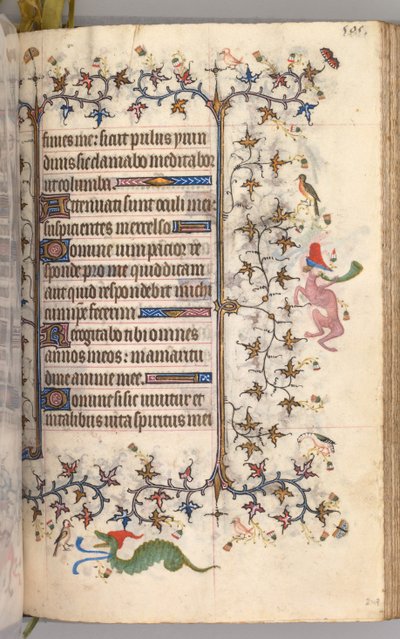 505.
finies me: sicut pullus yrun
dinis sic clamabo meditabor
ut columba.
Attenuati sunt oculi mei:
suspicientes in excelso
Domine uim patior re
sponde pro me quid dicam
aut quid respondebit michi
cum ipse fecerim
Recogitabo tibi omnes
annos meos: in amaritu
dine anime mee.
Domine si sic uiuitur et
in talibus uita spiritus mei